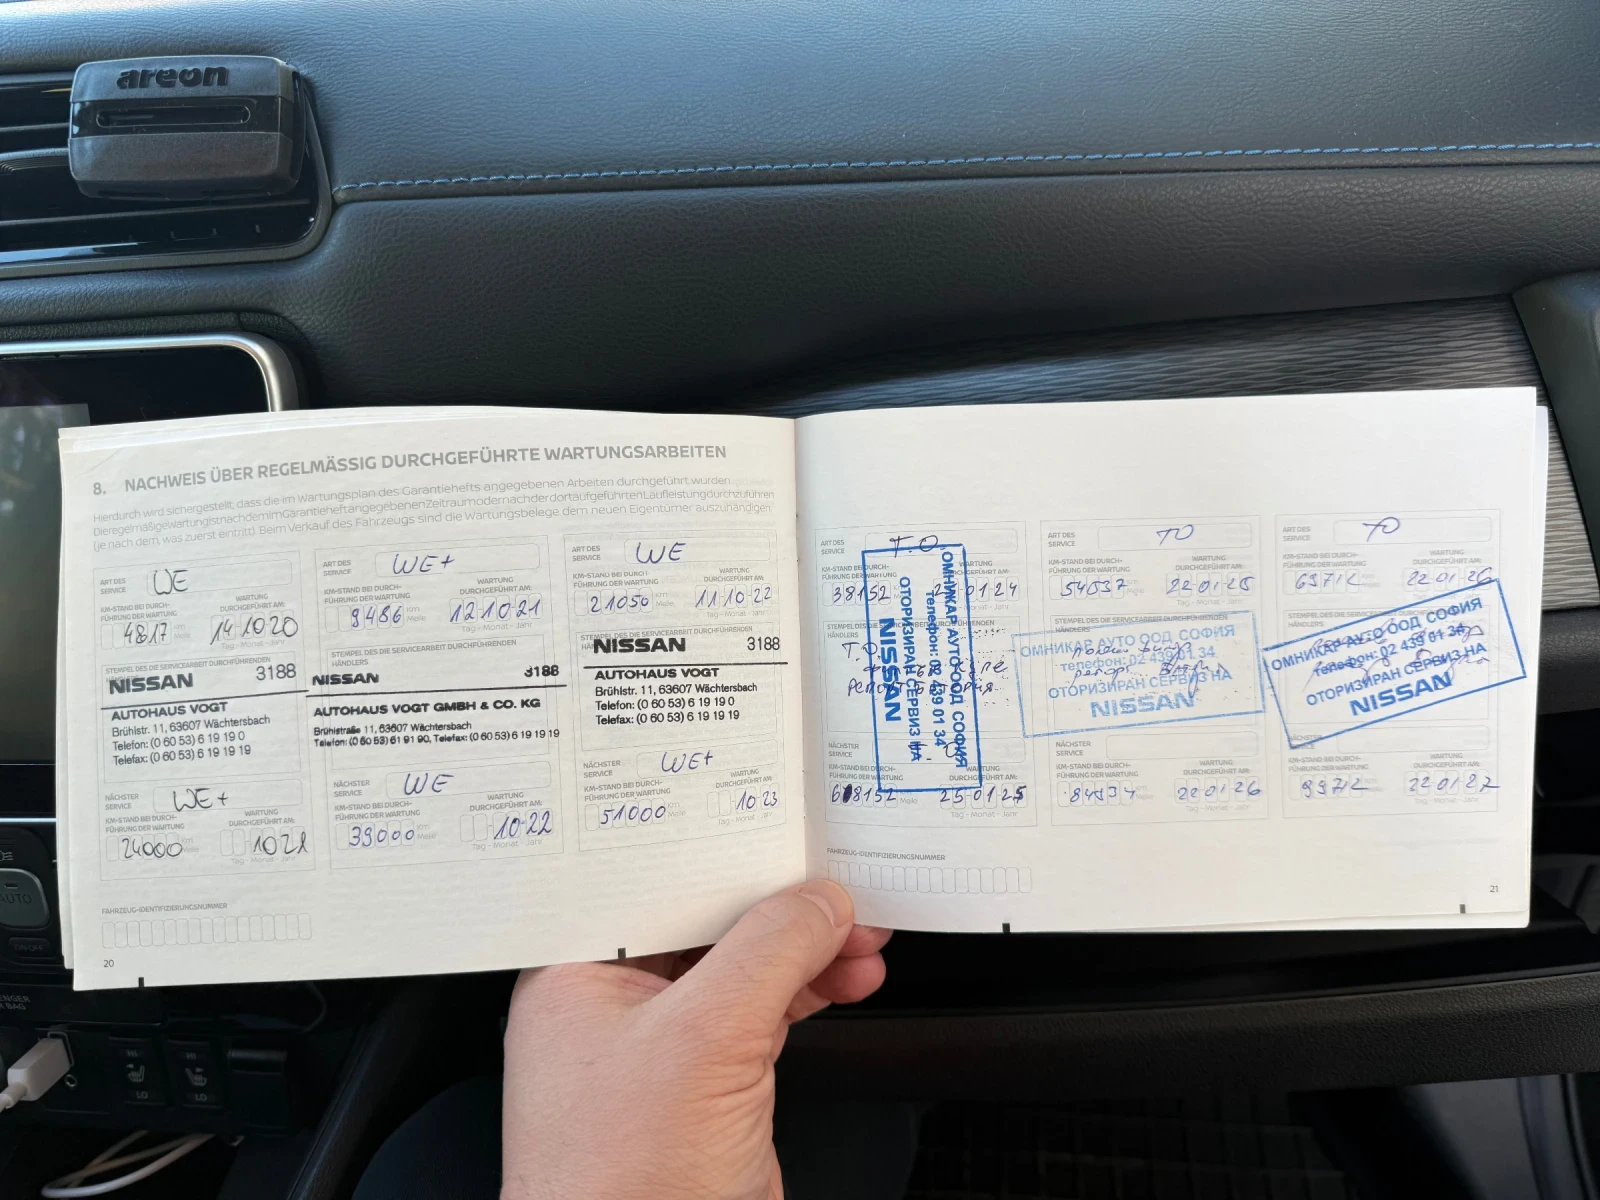 areon
8. NACHWEIS ÜBER REGELMÄSSIG DURCHGEFÜHRTE WARTUNGSARBEITEN
Hierdurch wird sichergestellt, dass die im Wartungsplan des Garantiehefts angegebenen Arbeiten durchgeführt wurden
Die regelmäßige Wartung ist nach dem im Garantieheft angegebenen Zeitraum oder nach der dort aufgeführten Laufleistung durchzuführen
(je nach dem, was zuerst eintritt). Beim Verkauf des Fahrzeugs sind die Wartungsbelege dem neuen Eigentümer auszuhändigen.
ART DES SERVICE WE
KM-STAND BEI DURCH-
FÜHRUNG DER WARTUNG
WARTUNG
DURCHGEFÜHRT AM:
4817 km Meile 14 10 20
STEMPEL DES DIE SERVICEARBEIT DURCHFÜHRENDEN
HÄNDLERS
NISSAN 3188
AUTOHAUS VOGT
Brühlstr. 11, 63607 Wächtersbach
Telefon: (0 60 53) 6 19 19 0
Telefax: (0 60 53) 6 19 19 19
NÄCHSTER SERVICE WE+
KM-STAND BEI DURCH-
FÜHRUNG DER WARTUNG
WARTUNG
DURCHGEFÜHRT AM:
24000 km Meile 10 21
Tag - Monat - Jahr
FAHRZEUG-IDENTIFIZIERUNGSNUMMER
20
ART DES SERVICE WE+
KM-STAND BEI DURCH-
FÜHRUNG DER WARTUNG
WARTUNG
DURCHGEFÜHRT AM:
9486 km Meile 12 10 21
Tag - Monat - Jahr
STEMPEL DES DIE SERVICEARBEIT DURCHFÜHRENDEN
HÄNDLERS
NISSAN 3188
AUTOHAUS VOGT GMBH & CO. KG
Brühlstraße 11, 63607 Wächtersbach
Telefon: (0 60 53) 61 91 90, Telefax: (0 60 53) 6 19 19 19
NÄCHSTER SERVICE WE
KM-STAND BEI DURCH-
FÜHRUNG DER WARTUNG
WARTUNG
DURCHGEFÜHRT AM:
39000 km Meile 10 22
Tag - Monat - Jahr
ART DES SERVICE WE
KM-STAND BEI DURCH-
FÜHRUNG DER WARTUNG
WARTUNG
DURCHGEFÜHRT AM:
21050 km Meile 11 10 22
Tag - Monat - Jahr
STEMPEL DES DIE SERVICEARBEIT DURCHFÜHRENDEN
NISSAN 3188
AUTOHAUS VOGT
Brühlstr. 11, 63607 Wächtersbach
Telefon: (0 60 53) 6 19 19 0
Telefax: (0 60 53) 6 19 19 19
NÄCHSTER SERVICE WE+
KM-STAND BEI DURCH-
FÜHRUNG DER WARTUNG
WARTUNG
DURCHGEFÜHRT AM:
51000 km Meile 10 23
Tag - Monat - Jahr
ART DES SERVICE T.O.
KM-STAND BEI DURCH-
FÜHRUNG DER WARTUNG
38152 01 24
ОМНИКАР АУТО ООД СОФИЯ
телефон: 02 439 01 34
ОТОРИЗИРАН СЕРВИЗ НА
NISSAN
NÄCHSTER SERVICE
KM-STAND BEI DURCH-
FÜHRUNG DER WARTUNG
WARTUNG
DURCHGEFÜHRT AM:
68152 Meile 25 01 25
Tag - Monat - Jahr
FAHRZEUG-IDENTIFIZIERUNGSNUMMER
ART DES SERVICE TO
KM-STAND BEI DURCH-
FÜHRUNG DER WARTUNG
WARTUNG
DURCHGEFÜHRT AM:
54537 Meile 22 01 25
STEMPEL DES DIE SERVICEARBEIT DURCHFÜHRENDEN
HÄNDLERS
ОМНИКАР АУТО ООД СОФИЯ
телефон: 02 439 01 34
ОТОРИЗИРАН СЕРВИЗ НА
NISSAN
NÄCHSTER SERVICE
KM-STAND BEI DURCH-
FÜHRUNG DER WARTUNG
WARTUNG
DURCHGEFÜHRT AM:
22 01 26
Tag - Monat - Jahr
ART DES SERVICE TO
KM-STAND BEI DURCH-
FÜHRUNG DER WARTUNG
WARTUNG
DURCHGEFÜHRT AM:
69712 22 01 26
ОМНИКАР АУТО ООД СОФИЯ
телефон: 02 439 01 34
ОТОРИЗИРАН СЕРВИЗ НА
NISSAN
NÄCHSTER SERVICE
KM-STAND BEI DURCH-
FÜHRUNG DER WARTUNG
WARTUNG
DURCHGEFÜHRT AM:
99712 22 01 27
Tag - Monat - Jahr
21
AUTO
ON·OFF
HI
LO
HI
LO